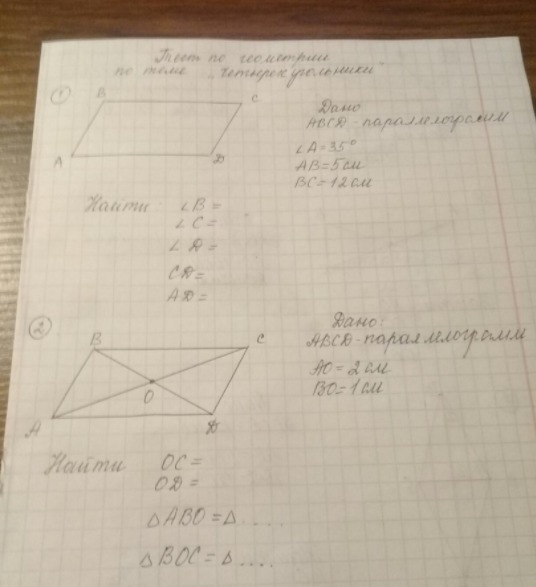 Тест по геометрии
по теме „Четырехугольники"
1
B
C
A
D
Дано
ABCD - параллелограмм
∠A = 35°
AB = 5 см
BC = 12 см
Найти ∠B =
∠C =
∠D =
CD =
AD =
2
B
C
O
A
D
Дано:
ABCD - параллелограмм
AO = 2 см
BO = 1 см
Найти OC =
OD =
△ABO = △ ....
△BOC = △ ....